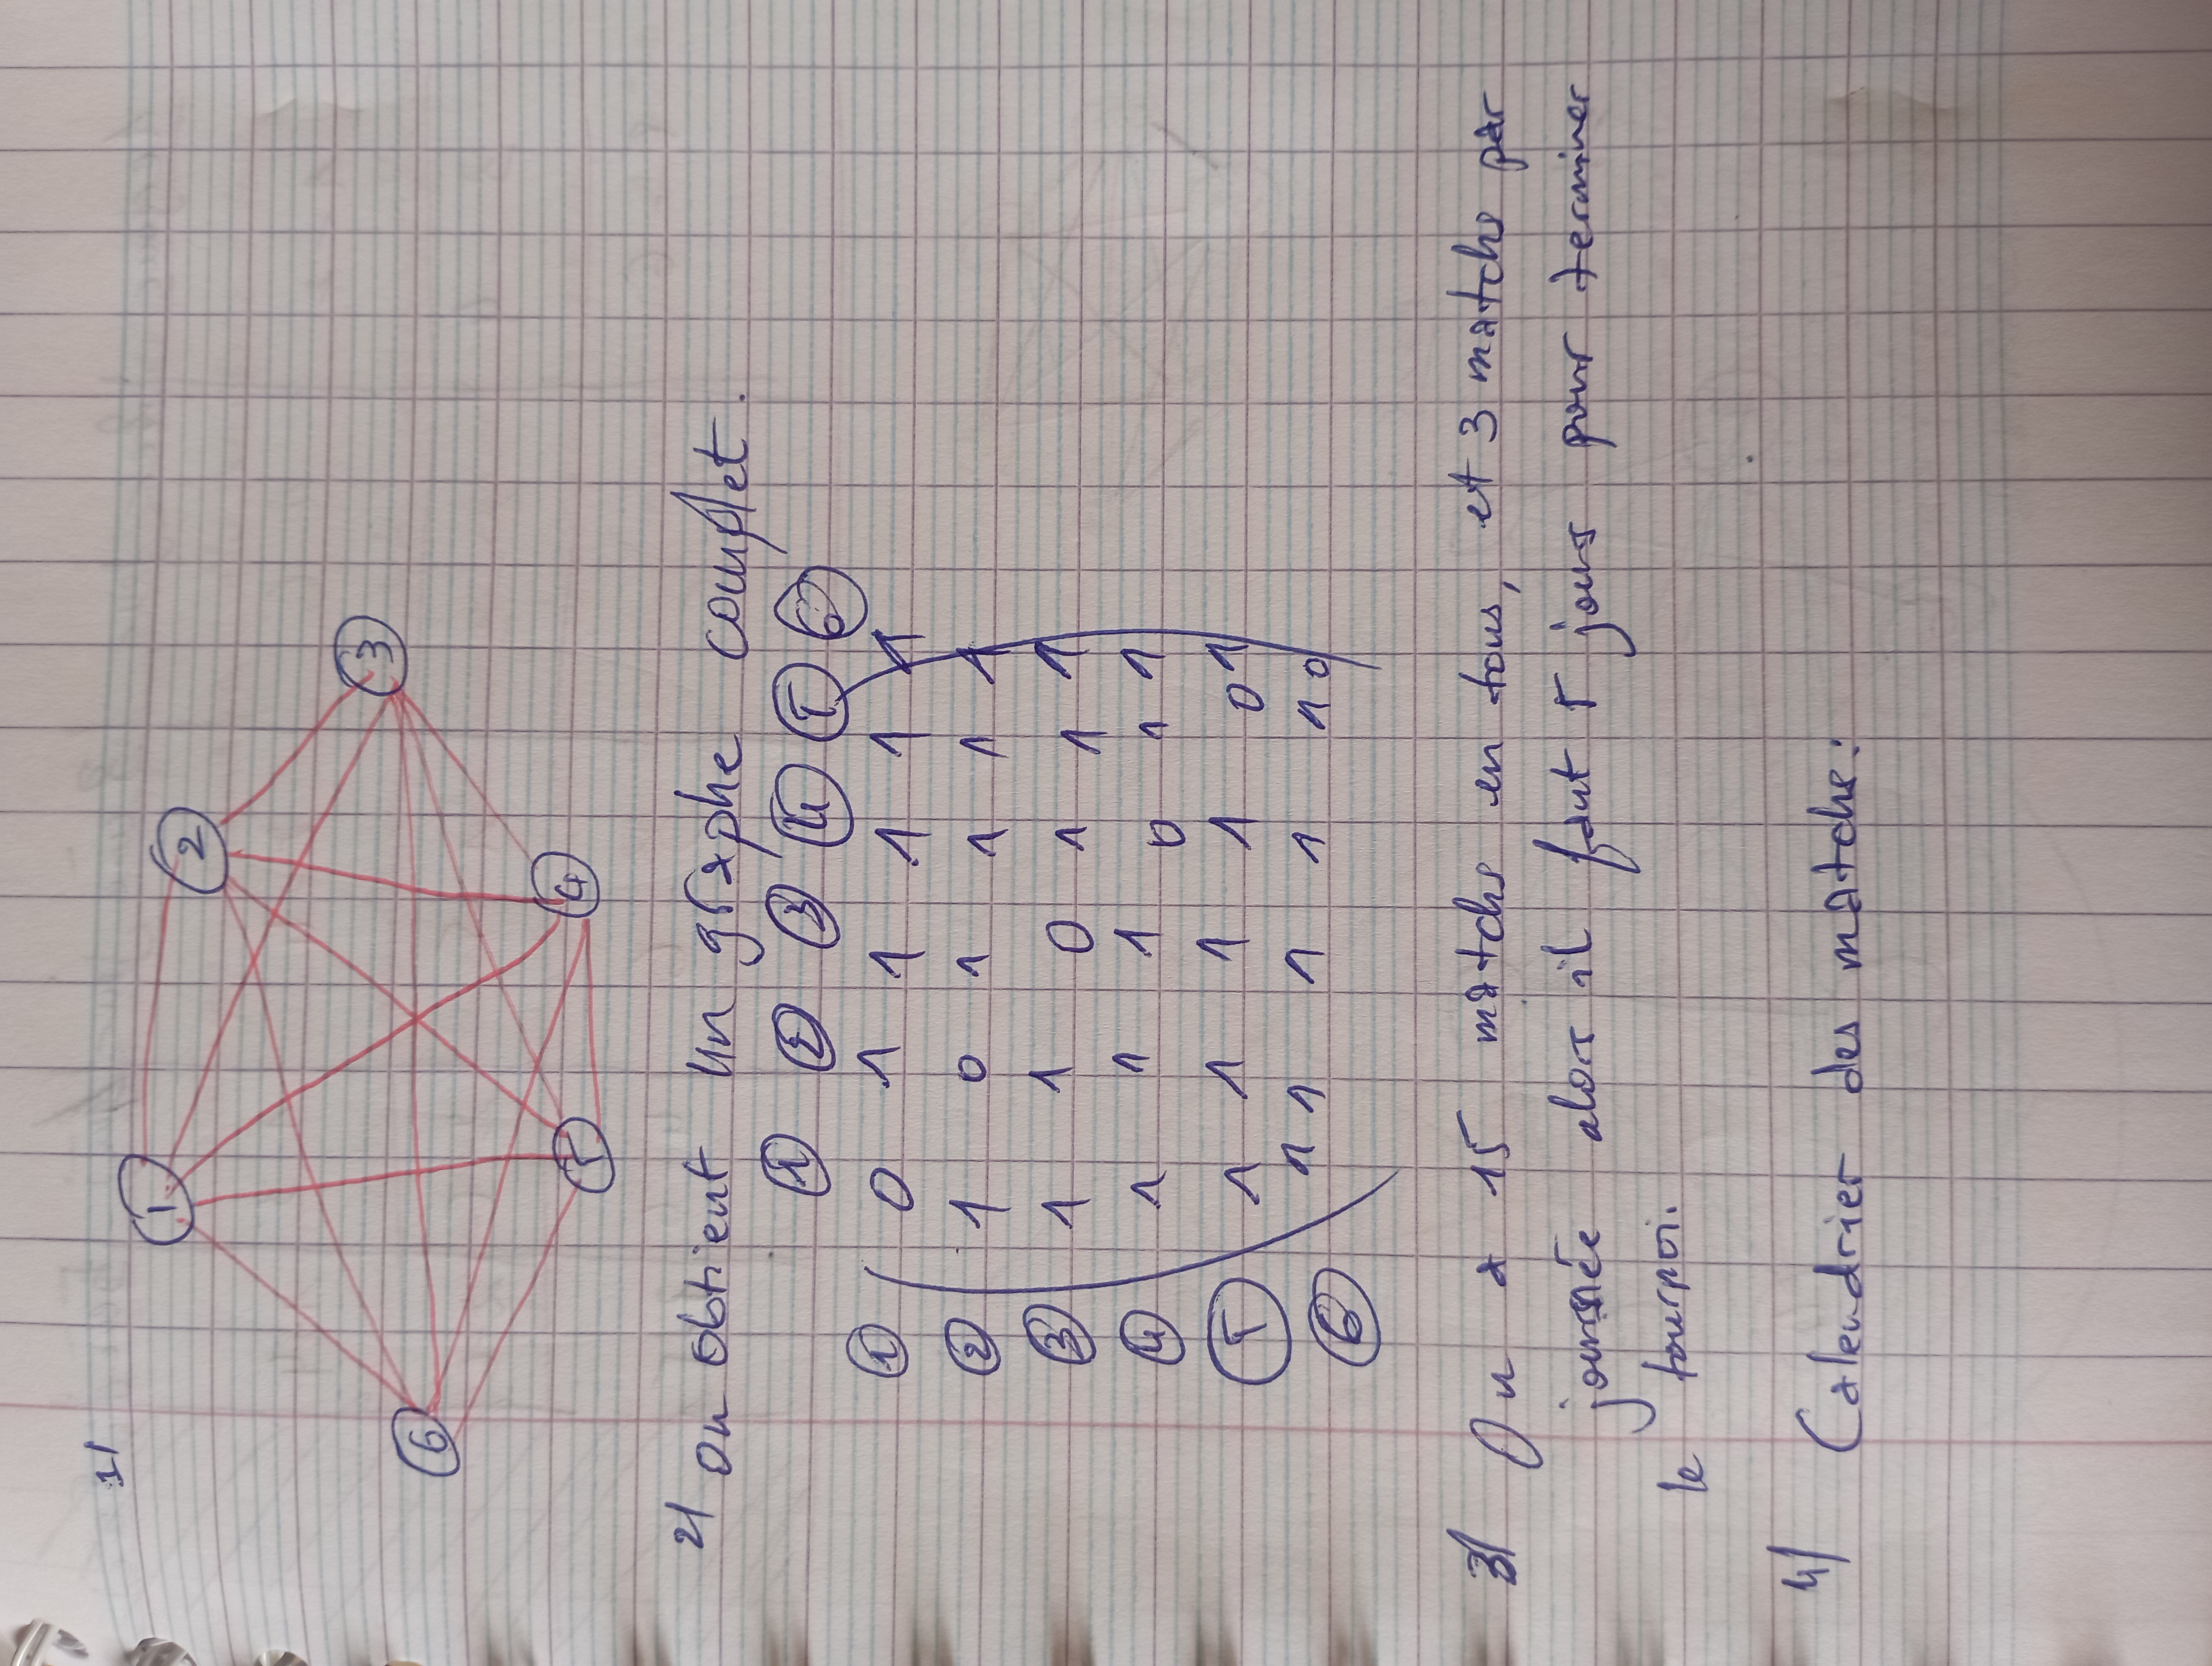 1/
1
2
3
6
5
4
2/ on obtient un graphe complet.
1 2 3 4 5 6
1 0 1 1 1 1 1
2 1 0 1 1 1 1
3 1 1 0 1 1 1
4 1 1 1 0 1 1
5 1 1 1 1 0 1
6 1 1 1 1 1 0
3/ On a 15 matchs en tous, et 3 matchs par
journée alors il faut 5 jours pour terminer
le tournoi.
4/ Calendrier des matchs: